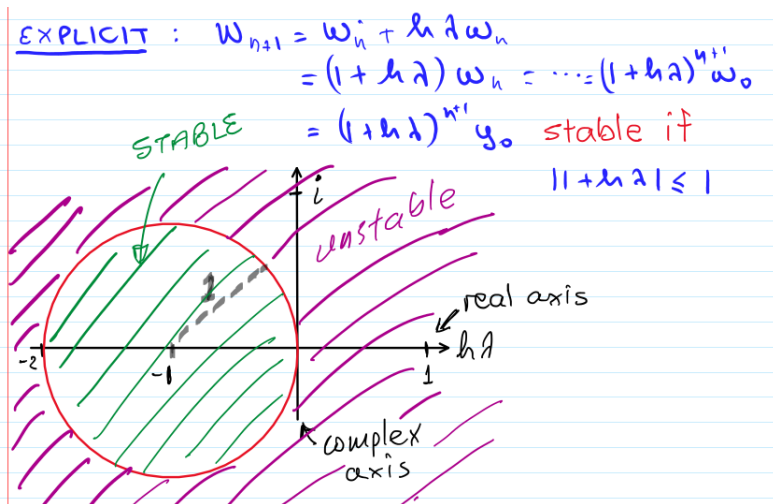 EXPLICIT : w_{n+1} = w_n + hλw_n
= (1 + hλ) w_n = ....= (1+hλ)^{n+1} w_0
= (1+hλ)^{n+1} y_0 stable if
|1+hλ| ≤ 1
STABLE
i
unstable
1
real axis
-2
-1
1
hλ
complex
axis